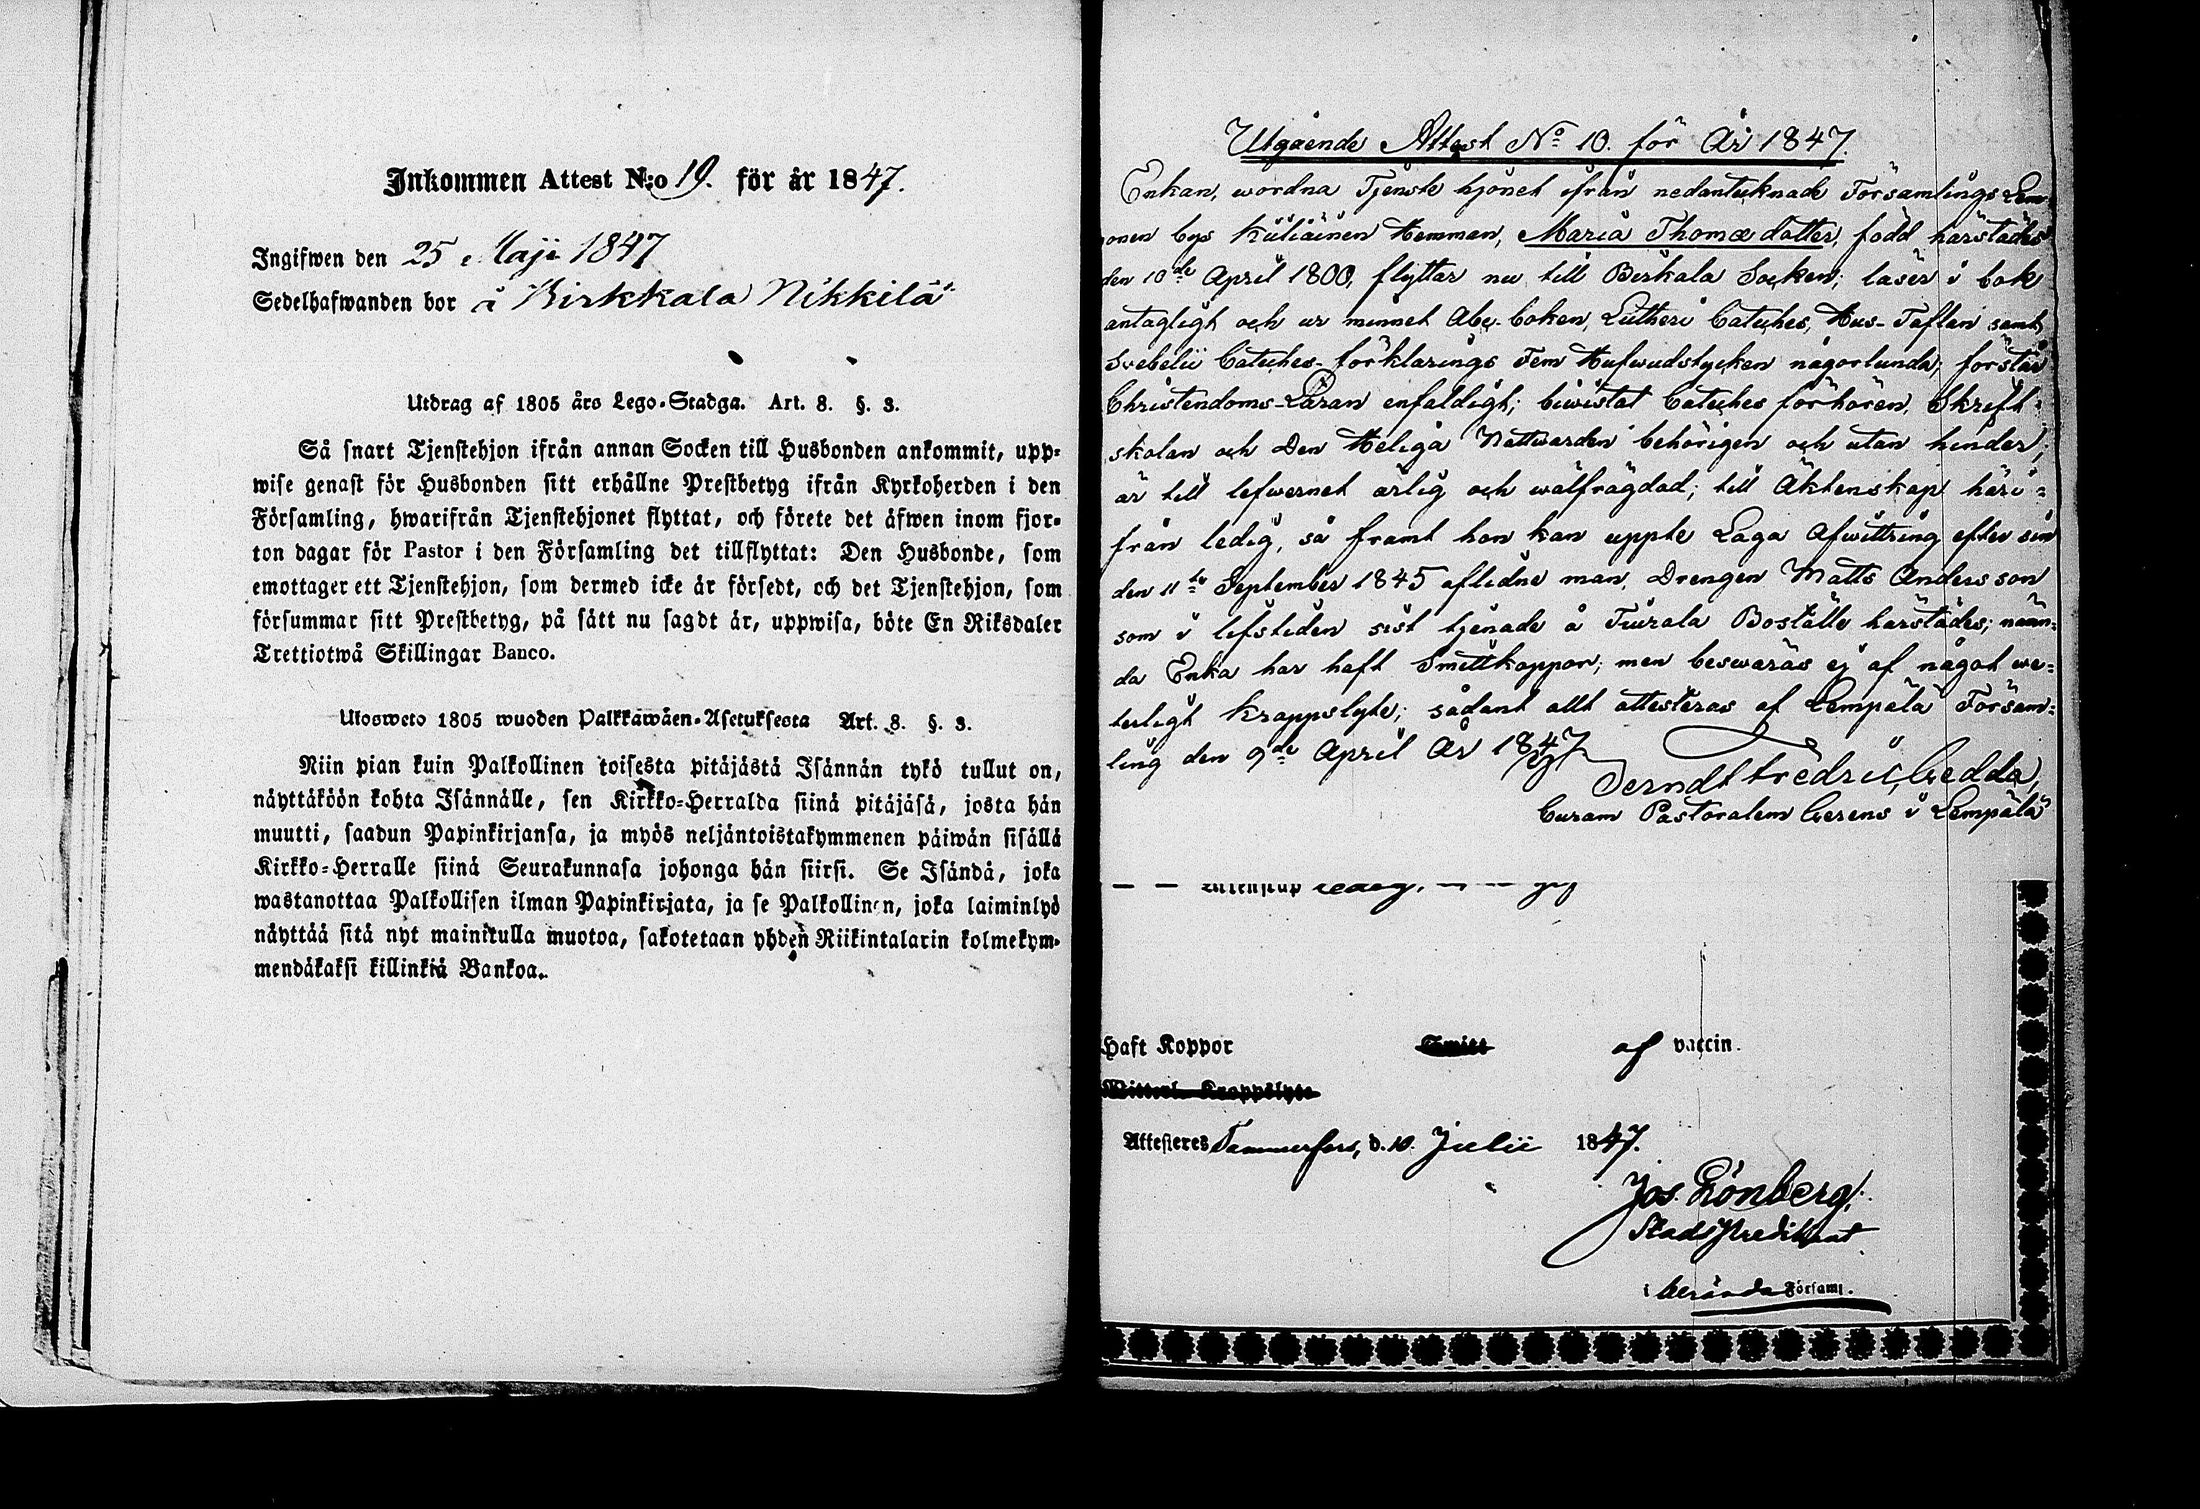 Inkommen Attest N:o 19. för år 1847.
Ingifwen den 25 Maji 1847
Sedelhafwanden bor å Birkkala Nikkilä
Utdrag af 1805 års Lego-Stadga. Art. 8. §. 3.
Så snart Tjenstehjon ifrån annan Socken till Husbonden ankommit, upp-
wise genast för Husbonden sitt erhållne Prestbetyg ifrån Kyrkoherden i den
Församling, hwarifrån Tjenstehjonet flyttat, och förete det äfwen inom fjor-
ton dagar för Pastor i den Församling det tillflyttat: Den Husbonde, som
emottager ett Tjenstehjon, som dermed icke är försedt, och det Tjenstehjon, som
försummar sitt Prestbetyg, på sätt nu sagdt är, uppwisa, böte En Riksdaler
Trettiotwå Skillingar Banco.
Ulosweto 1805 wuoden Palkkawäen-Asetuksesta Art. 8. §. 3.
Niin pian kuin Palkollinen toisesta pitäjästä Isännän tykö tullut on,
näyttäköön kohta Isännälle, sen Kirkko-Herralda siinä pitäjäsä, josta hän
muutti, saadun Papinkirjansa, ja myös neljäntoistakymmenen päiwän sisällä
Kirkko-Herralle siinä Seurakunnasa johonga hän siirsi. Se Isändä, joka
wastanottaa Palkollisen ilman Papinkirjata, ja se Palkollinen, joka laiminlyö
näyttää sitä nyt mainitulla muotoa, sakotetaan yhden Riikintalarin kolmekym-
mendäkaksi killinkiä Bankoa.
Utgående Attest No 10. för År 1847.
Enkan, wordna Tjenste hjonet ifrån nedantecknade Församlings Lem-
onen bys Kuliäinen Hemman, Maria Thomædotter, född härstädes
den 10de April 1800, flyttar nu till Birkala Socken; läser i bok
antagligt och ur minnet Abc-boken, Lutheri Cateches, Hus-Taflan samt
Svebelii Cateches-förklarings Fem Hufwudstycken någorlunda; förstår
Christendoms-Läran enfaldigt; biwistat Catechesförhören, Skrift-
skolan och Den Heliga Nattwarden behörigen och utan hinder;
är till lefwernet ärlig och wälfrägdad; till Äktenskap häri-
från ledig, så framt hon kan uppte Laga Afwittring efter sin
den 11te September 1845 aflidne man, Drengen Matts Andersson
som i lifstiden sist tjenade å Turala Boställe härstädes; näm-
da Enka har haft Smittkoppor; men beswäras ej af något we-
terligt krappslyte; sådant allt attesteras af Lempälä Försam-
ling den 9de April År 1847
Berndt Fredric Gedda,
Curam Pastoralem Gerens i Lempälä
— — Äktenskap ledig. — —
Haft Koppor Smitt af vaccin.
Witterl. Krappslyte
Attesteres Tammerfors, d. 10. Julii 1847.
Jos. Grönberg,
StadsPredikant
i berörda Församl.